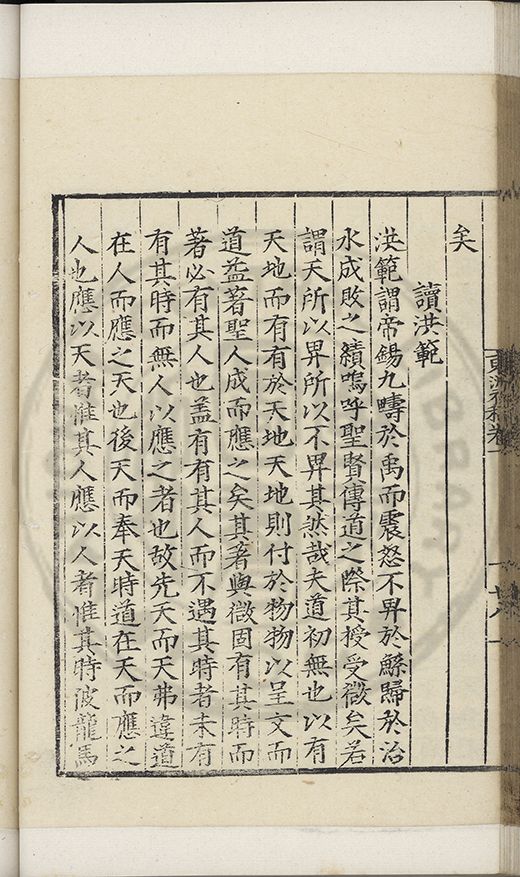 矣
讀洪範
洪範謂帝錫九疇於禹而震怒不畀於鯀歸於治
水成敗之績嗚呼聖賢傳道之際其授受微矣若
謂天所以畀所以不畀其然哉夫道初無也以有
天地而有有於天地天地則付於物物以呈文而
道益著聖人成而應之矣其著與微固有其時而
著必有其人也盖有有其人而不遇其時者未有
有其時而無人以應之者也故先天而天弗違道
在人而應之天也後天而奉天時道在天而應之
人也應以天者惟其人應以人者惟其時彼龍馬